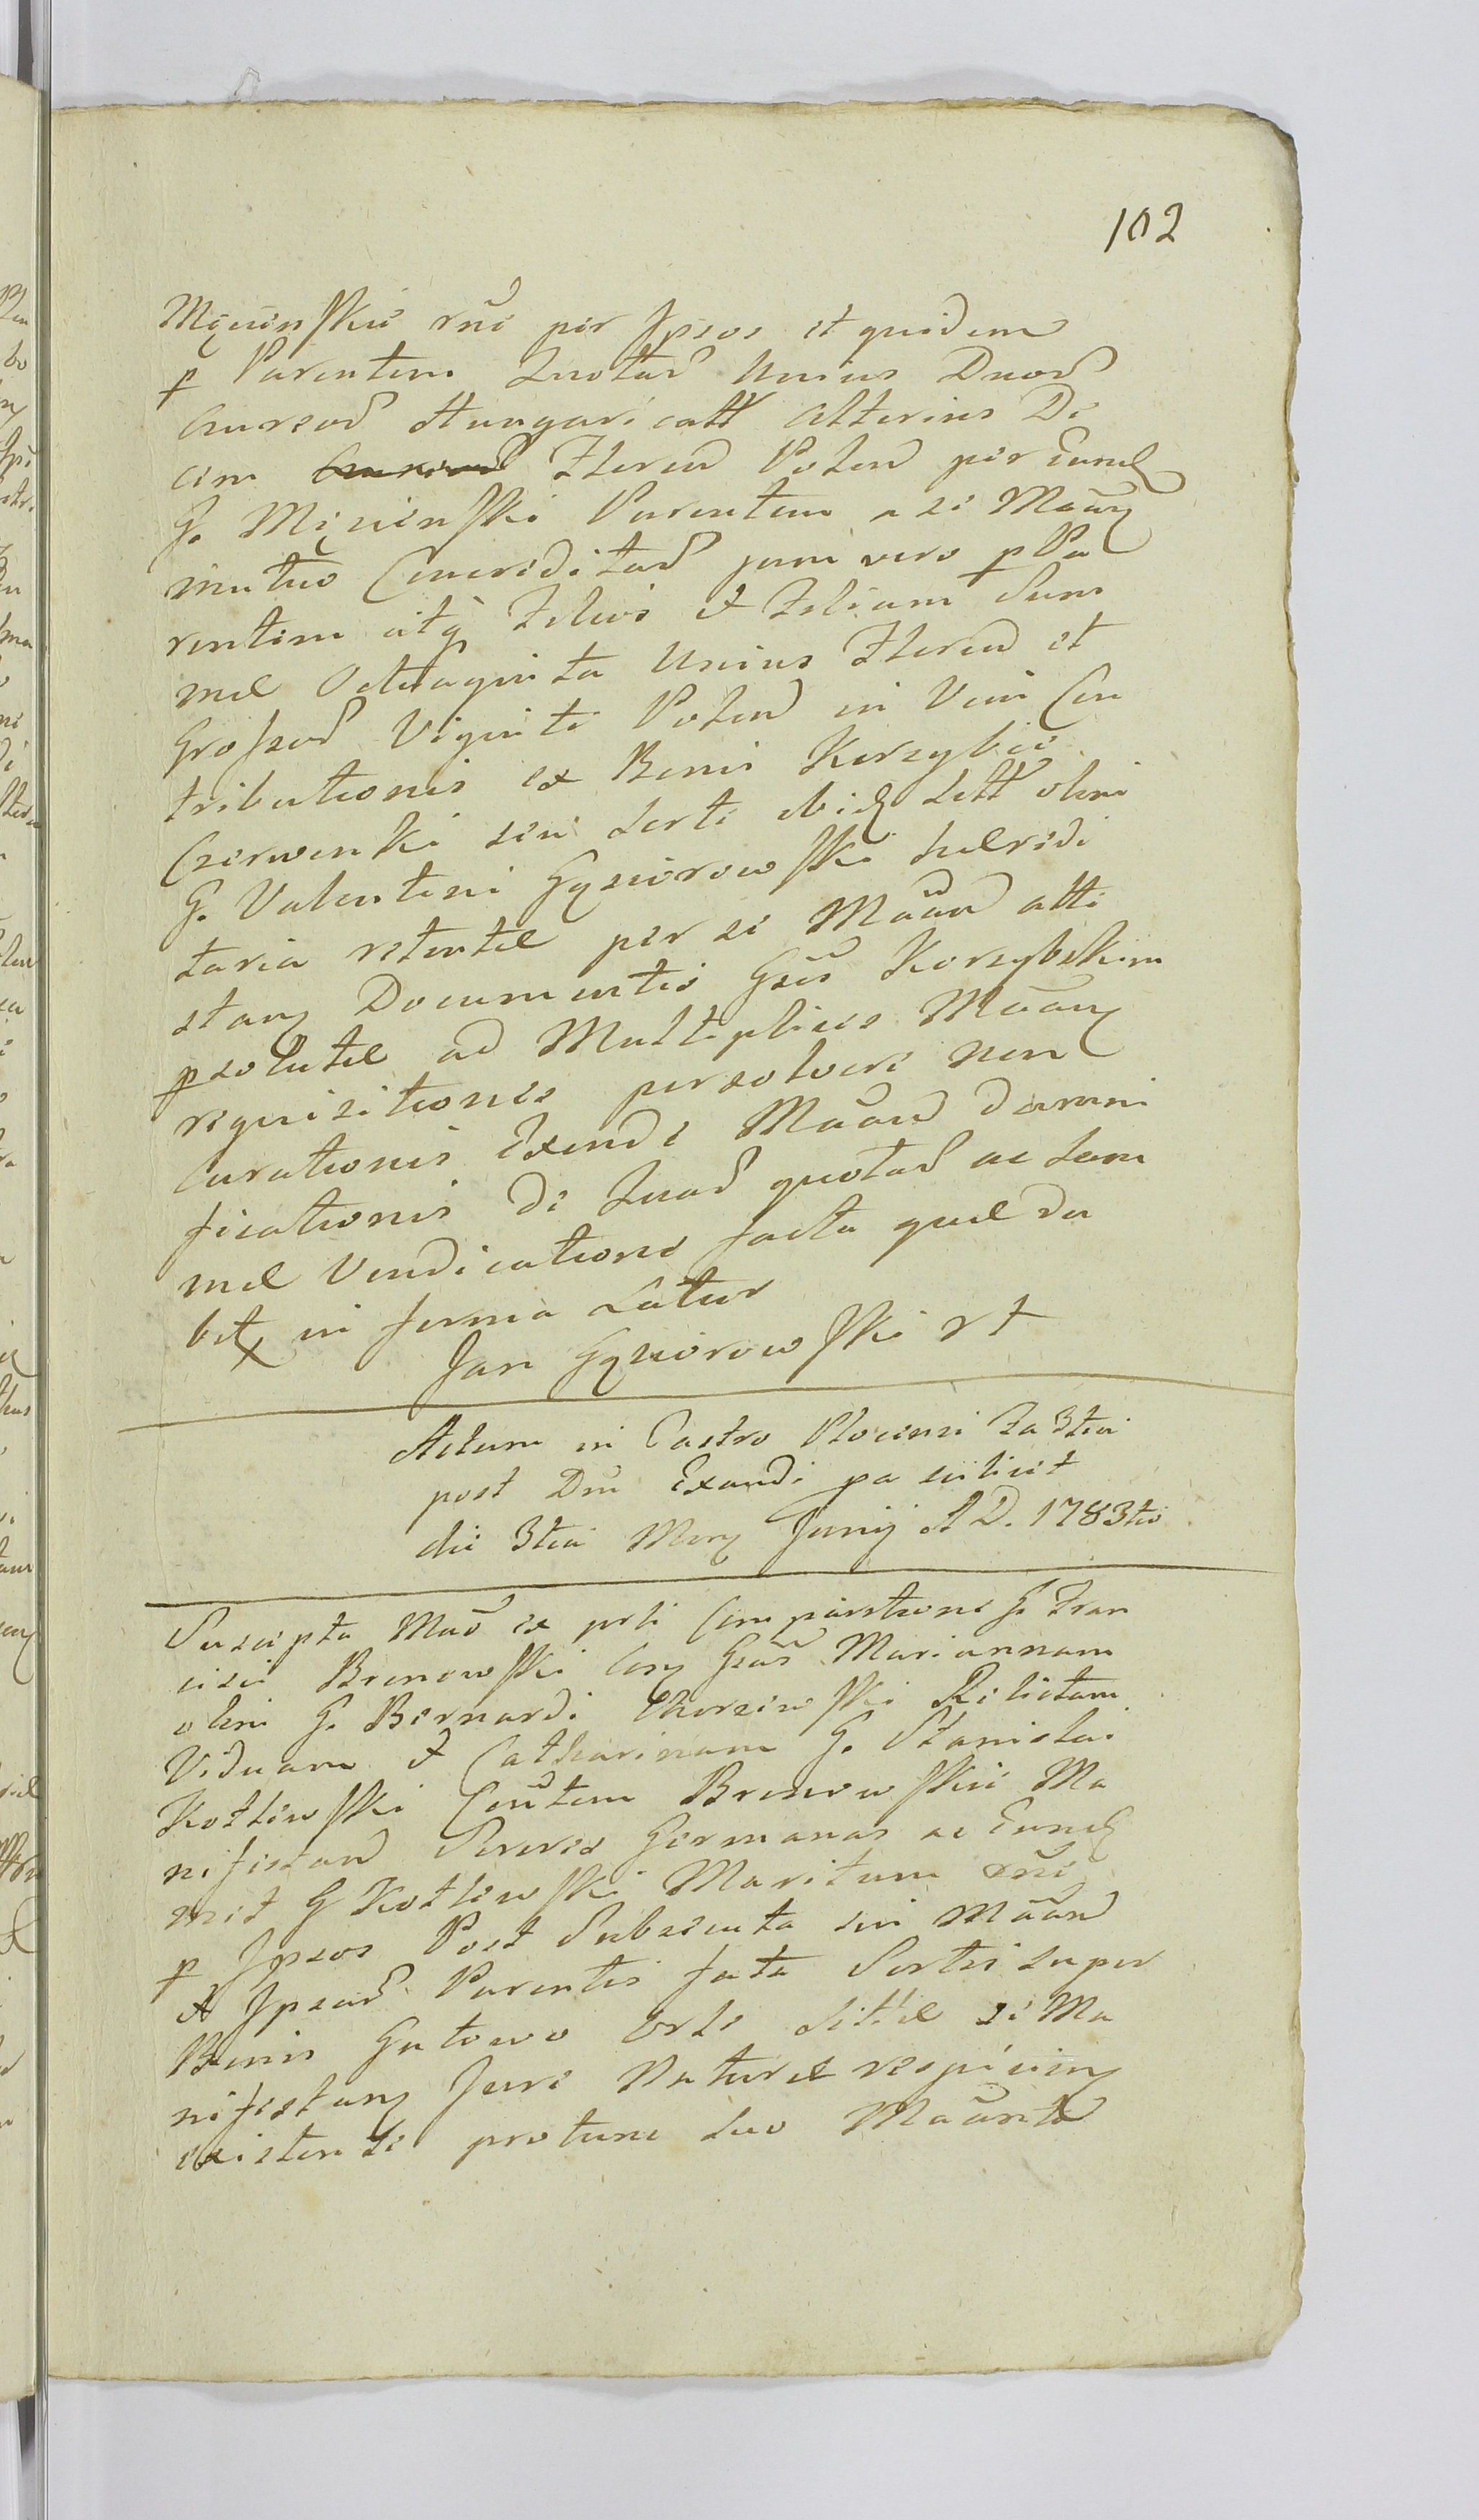 102
Męcinskie rñe per Ipsos et quidem
p Parentem Quotar Unius Duor
Aureor Hungaricall Alterius De
cim Floren Polon per Eund
G. Męcinski Parentem a se Mãan
mutuo Concreditar jam vero p Pa
rentem atq Filios et Filiam Sum
mae Octuaginta Unius Floren et
Grossor Viginti Polon in Vim Con
tributionis ex Bonis Korzybie
Czerwonki seu Sorte ibid Sett olim
G. Valentini Gąsiorowski haeredi
taria retentae per se Mãan atte
stan Documentis Gsis Korzybskim
psolutae ad Multiplices Mãan
requisitiones persolvere non
curationis Exinde Mãan damni
ficationis De Quar quotar ac Sum
mae Vendicatione facta quae da
bit in forma Latior
Jan Gąsiorowski rt
Actum in Castro Plocensi Fa 3tia
post Dm Exaudi pa scilicet
die 3tia Men Junij A D. 1783tio
Suscepta Mão ex prti Comparitione G. Fran
cisci Bronowski Con Gsas Mariannam
olim G. Bernardi Relictam
Viduam et Catharinam G. Stanislai
Kotlewski Conŭtem Bronowskie Ma
nifestan Sorores Germanas ac Eund
met G Kotlewski Maritum rñe
p Ipsos Post Subsecuta sui Mãan
et Ipsar Parentis fata Sortis super
Bonis Gutowo sitae se Ma
nifestan Jure Naturae respicien
existen de protunc suo Mãante